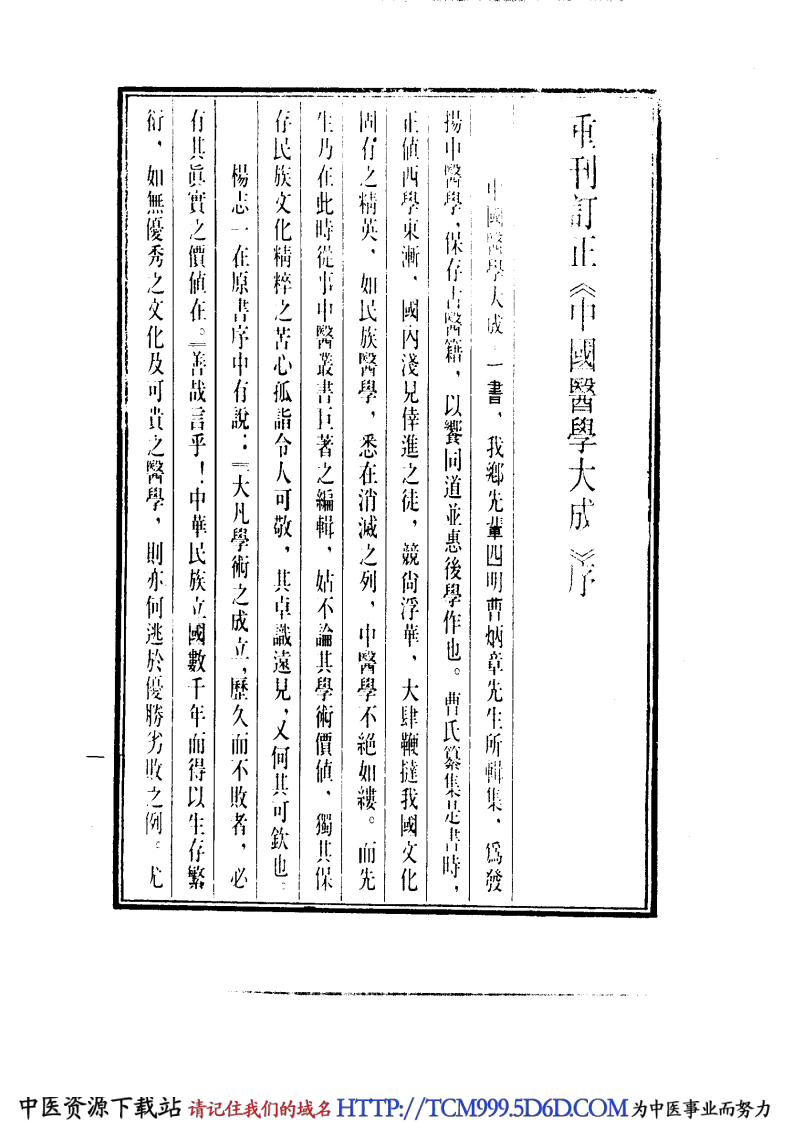 重刊訂正《中國醫學大成》序
中國醫學大成一書，我鄉先輩四明曹炳章先生所輯集，爲發
揚中醫學，保存古醫籍，以饗同道並惠後學作也。曹氏纂集是書時，
正値西學東漸，國內淺見倖進之徒，競尙浮華，大肆鞭撻我國文化
固有之精英，如民族醫學，悉在消滅之列，中醫學不絕如縷。而先
生乃在此時從事中醫叢書巨著之編輯，姑不論其學術價値，獨其保
存民族文化精粹之苦心孤詣令人可敬，其卓識遠見，又何其可欽也。
楊志一在原書序中有說：『大凡學術之成立，歷久而不敗者，必
有其眞實之價値在。』善哉言乎！中華民族立國數千年而得以生存繁
衍，如無優秀之文化及可貴之醫學，則亦何逃於優勝劣敗之例。尤
一
中医资源下载站 请记住我们的域名 HTTP://TCM999.5D6D.COM 为中医事业而努力